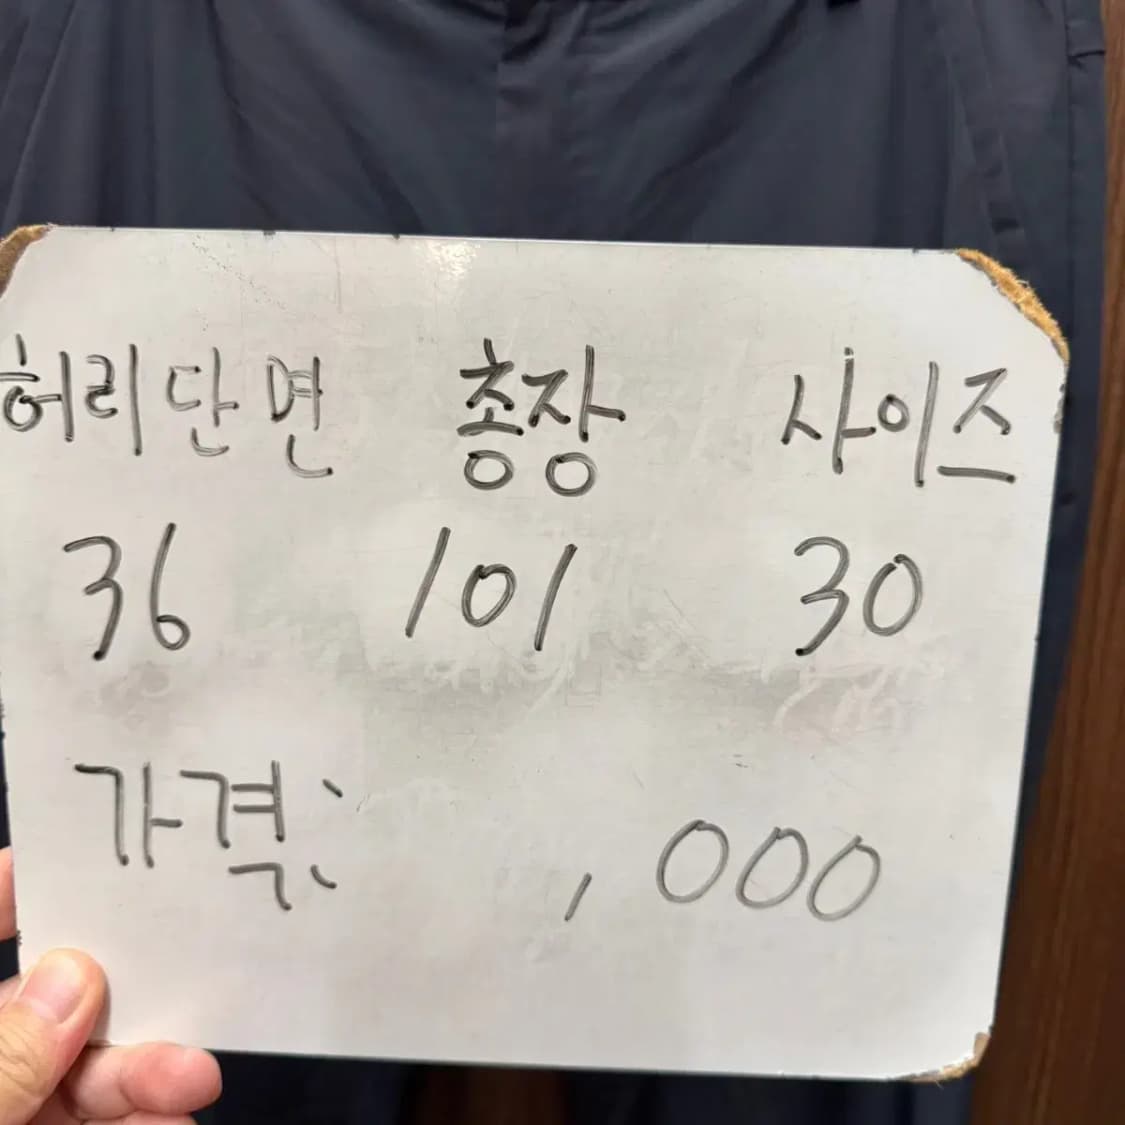 허리단면 총장 사이즈
36 101 30
가격: ,000